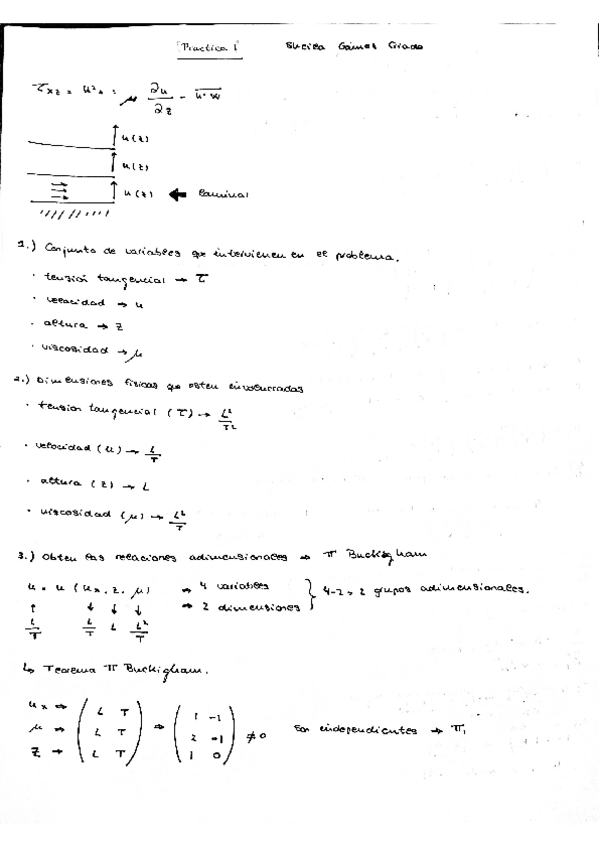 Practica 1
τxz = u²* = μ ∂u/∂z - u·w
u(z)
u(z)
u(z) ← laminar
1.) Conjunto de variables que intervienen en el problema.
· tensión tangencial → τ
· velocidad → u
· altura → z
· viscosidad → μ
2.) Dimensiones físicas que esten involucradas
· tension tangencial (τ) → L²/T²
· velocidad (u) → L/T
· altura (z) → L
· viscosidad (μ) → L²/T
3.) Obten las relaciones adimensionales → π Buckigham
u = u (u*, z, μ) → 4 variables } 4-2 = 2 grupos adimensionales.
↑ ↓ ↓ ↓ → 2 dimensiones
L/T L/T L L²/T
↳ Teorema π Buckigham.
u* → ( L T ) → ( 1 -1 )
μ → ( L T ) ( 2 -1 ) ≠ 0 son independientes → π₁
z → ( L T ) ( 1 0 )